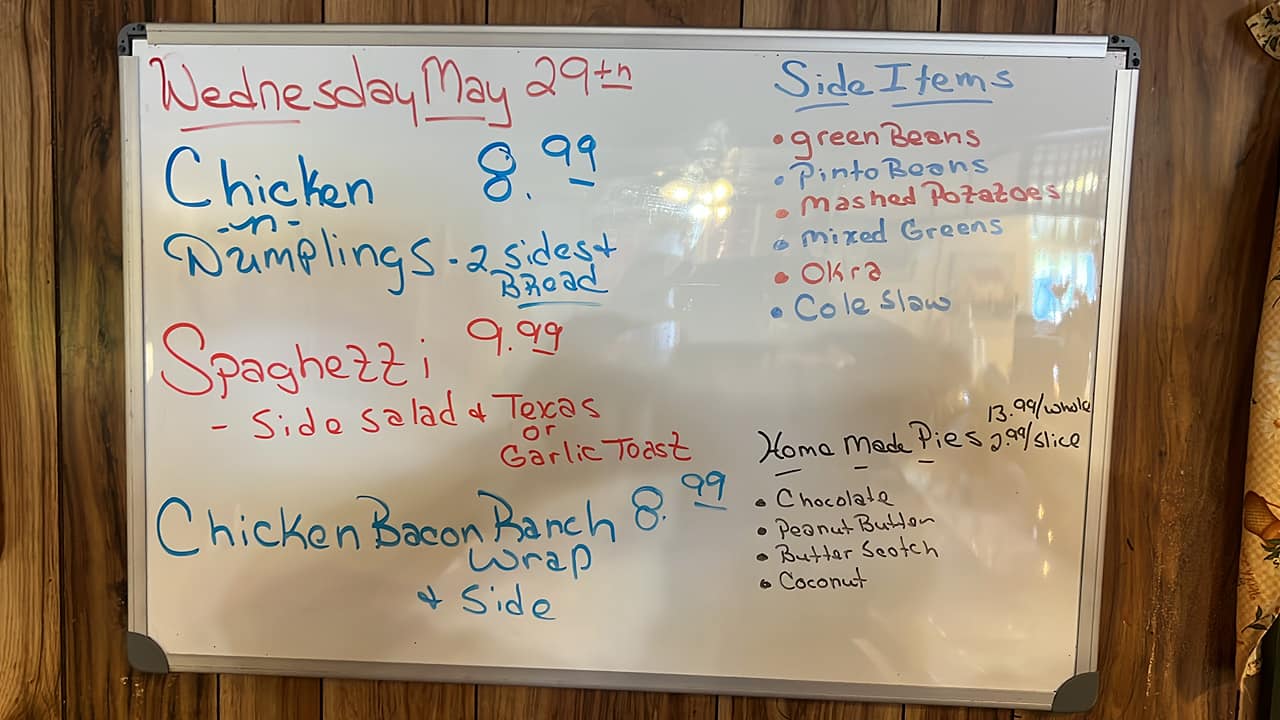 Wednesday May 29th
Chicken 8.99
-n-
Dumplings - 2 sides +
Bread
Spaghetti 9.99
- Side salad + Texas
or
Garlic Toast
Chicken Bacon Ranch 8.99
Wrap
+ Side
Side Items
• green Beans
• Pinto Beans
• Mashed Potatoes
• Mixed Greens
• Okra
• Cole Slaw
13.99/whole
Home Made Pies 2.99/slice
• Chocolate
• Peanut Butter
• Butter Scotch
• Coconut